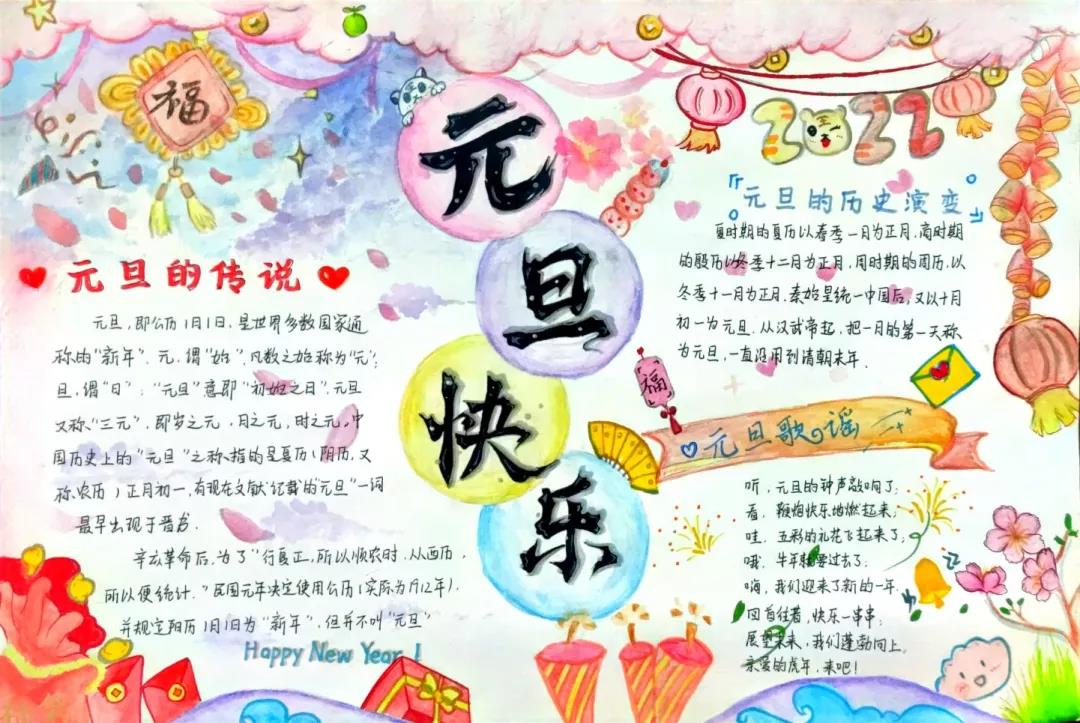 福
元
旦
快
乐
2022
元旦的传说
元旦，即公历1月1日，是世界多数国家通
称的“新年”．元，谓“始”，凡数之始称为“元”；
旦，谓“日”；“元旦”意即“初始之日”．元旦
又称“三元”，即岁之元．月之元，时之元。中
国历史上的“元旦”之称，指的是夏历（阴历，又
称，农历）正月初一，有现在文献记载的“元旦”一词
最早出现于晋书．
辛亥革命后，为了“行夏正，所以顺农时．从西历，
所以便统计．”民国元年决定使用公历（实际为1912年），
并规定阳历1月1日为“新年”，但并不叫“元旦”
Happy New Year！
『元旦的历史演变』
夏时期的夏历以春季一月为正月，商时期
的殷历以冬季十二月为正月，周时期的周历，以
冬季十一月为正月．秦始皇统一中国后，又以十月
初一为元旦．从汉武帝起，把一月的第一天称
为元旦，一直沿用到清朝末年．
福
元旦歌谣
听，元旦的钟声敲响了；
看，鞭炮快乐地燃起来；
哇，五彩的礼花飞起来了；
哦，牛年就要过去了．
嗨，我们迎来了新的一年．
回首往着，快乐一串串；
展望未来，我们蓬勃向上。
亲爱的虎年，来吧！